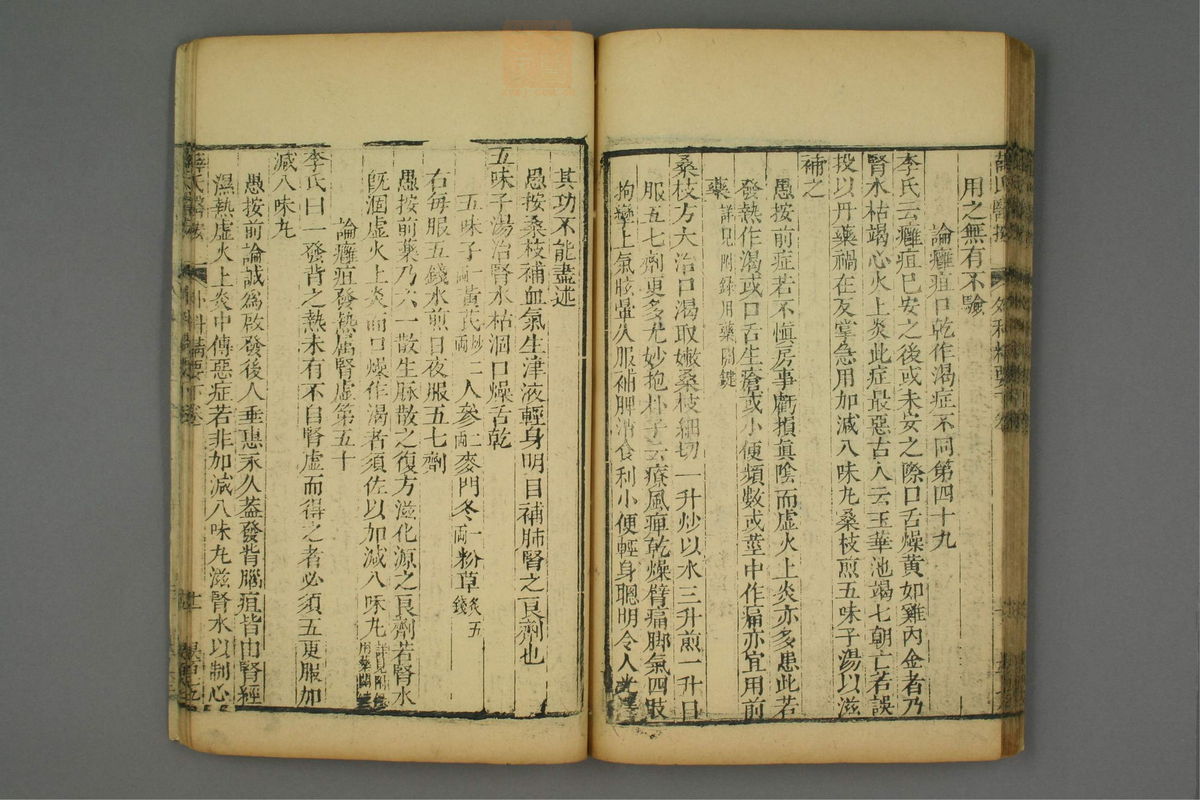 用之無有不驗
論癰疽口乾作渴症不同第四十九
李氏云癰疽已安之後或未安之際口舌燥黃如雞內金者乃
腎水枯竭心火上炎此症最惡古人云玉華池竭七朝亡若誤
投以丹藥禍在反掌急用加減八味丸桑枝煎五味子湯以滋
補之
愚按前症若不慎房事虧損真陰而虛火上炎亦多患此若
發熱作渴或口舌生瘡或小便頻數或莖中作痛亦宜用前
藥詳見附錄用藥關鍵
桑枝方大治口渴取嫩桑枝細切一升炒以水三升煎一升日
服五七劑更多尤妙抱朴子云療風痺乾燥臂痛脚氣四肢
拘攣上氣眩暈久服補脾消食利小便輕身聰明令人光澤
其功不能盡述
愚按桑枝補血氣生津液輕身明目補肺腎之良劑也
五味子湯治腎水枯涸口燥舌乾
五味子一兩黃芪炒三兩人參二兩麥門冬一兩粉草炙五錢
右每服五錢水煎日夜服五七劑
愚按前藥乃六一散生脉散之復方滋化源之良劑若腎水
既涸虛火上炎而口燥作渴者須佐以加減八味丸詳見附錄用藥關鍵
論癰疽發熱屬腎虛第五十
李氏曰一發背之熱未有不自腎虛而得之者必須五更服加
減八味丸
愚按前論誠爲啟發後人垂惠永久葢發背腦疽皆由腎經
濕熱虛火上炎中傳惡症若非加減八味丸滋腎水以制心
薛氏醫按 外科精要下卷 十二